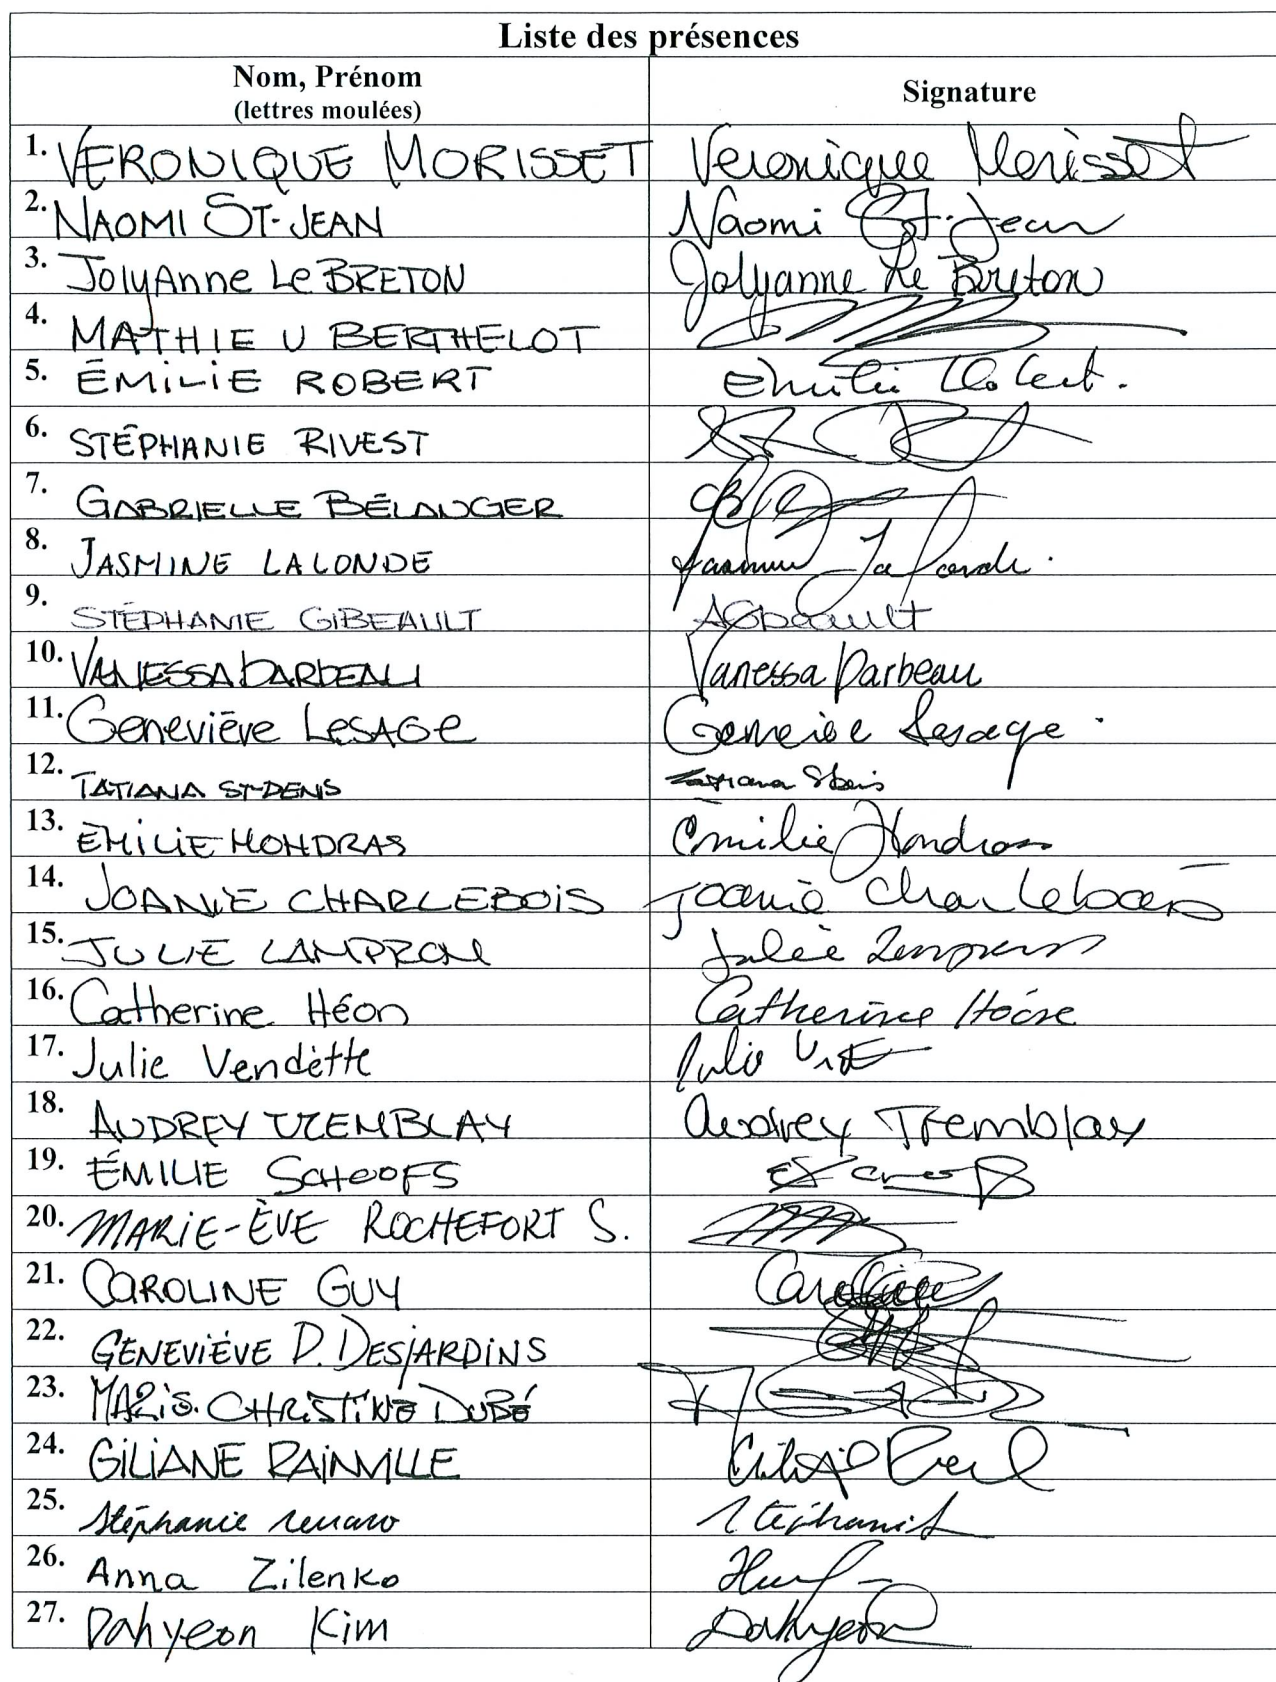 Liste des présences
Nom, Prénom
(lettres moulées)
Signature
1. VERONIQUE MORISSET Veronique Morisset
2. NAOMI ST-JEAN Naomi St-Jean
3. JolyAnne Le BRETON Jolyanne Le Breton
4. MATHIEU BERTHELOT
5. ÉMILIE ROBERT Émilie Robert.
6. STÉPHANIE RIVEST
7. GABRIELLE BÉLANGER
8. JASMINE LALONDE Jasmine Lalonde.
9. STÉPHANIE GIBEAULT SGibeault
10. VANESSA DARBEAU Vanessa Darbeau
11. Geneviève LESAGE Geneviève Lesage.
12. TATIANA ST-DENIS Tatiana
13. ÉMILIE HONDRAS Émilie Hondras
14. JOANIE CHARLEBOIS Joanie Charlebois
15. JULIE LAMPRON Julie Lampron
16. Catherine Héon Catherine Héon
17. Julie Vendette Julie
18. AUDREY TREMBLAY Audrey Tremblay
19. ÉMILIE SCHOOFS
20. MARIE-ÈVE ROCHEFORT S.
21. CAROLINE GUY Caroline
22. GENEVIÈVE D. DESJARDINS
23. MARIE-CHRISTINE DUBÉ
24. GILIANE RAINVILLE
25. Stéphanie Renaro Stéphanie
26. Anna Zilenko
27. Dahyeon Kim Dahyeon